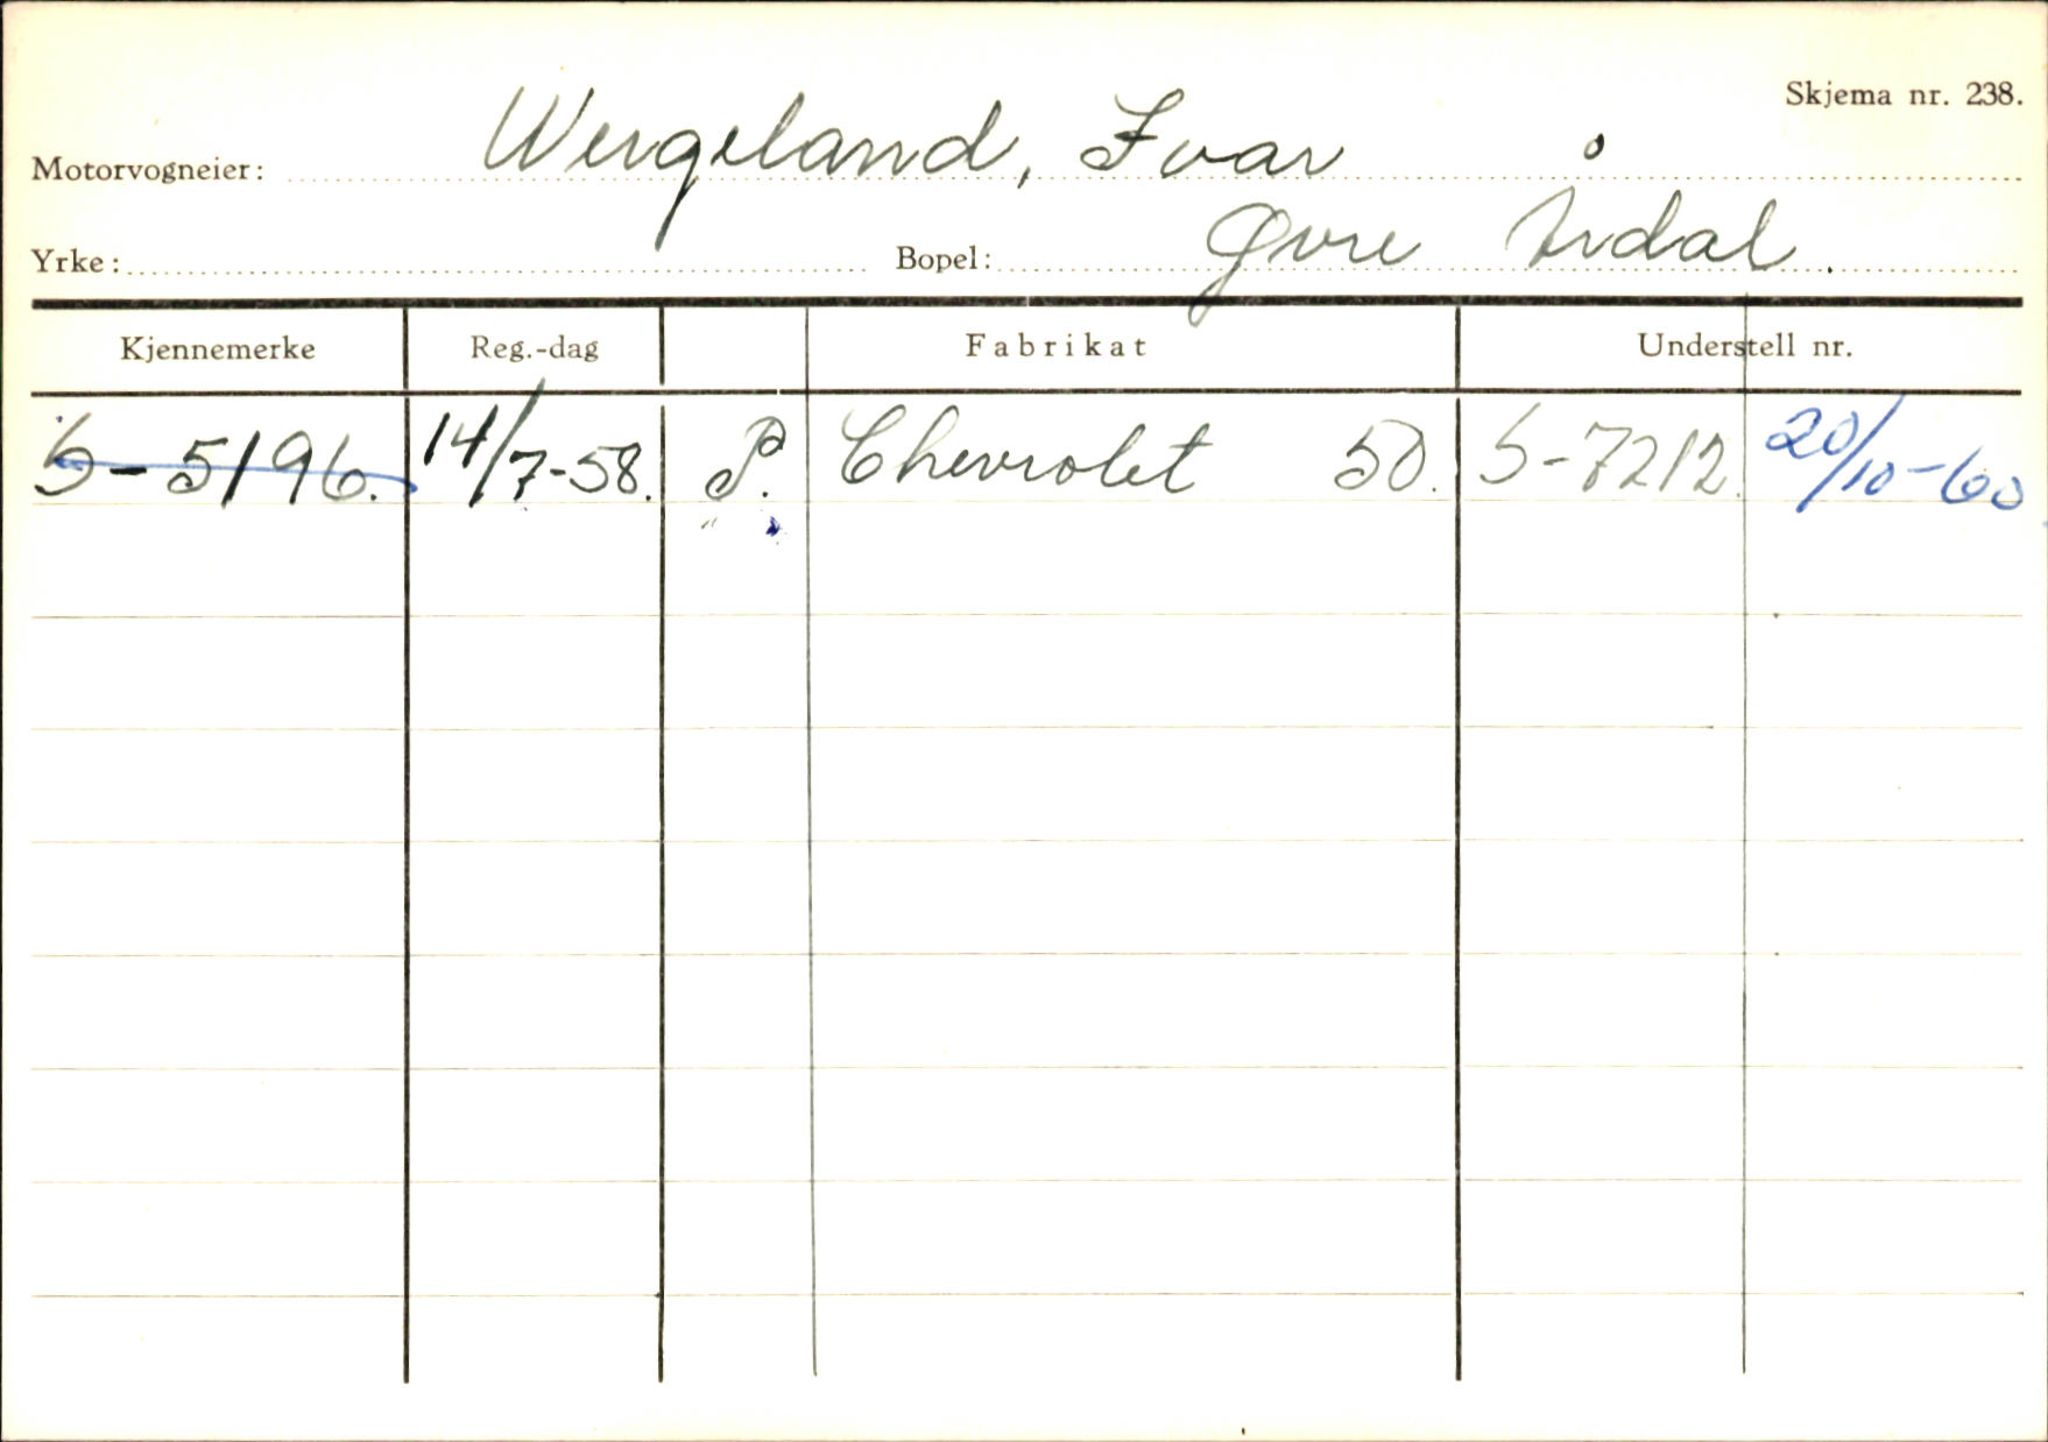 Skjema nr. 238.
Motorvogneier: Wergeland, Ivar
Yrke: Bopel: Øvre Årdal.
Kjennemerke Reg.-dag Fabrikat Understell nr.
S-5196. 14/7-58. P. Chevrolet 50. S-7212. 20/10-60